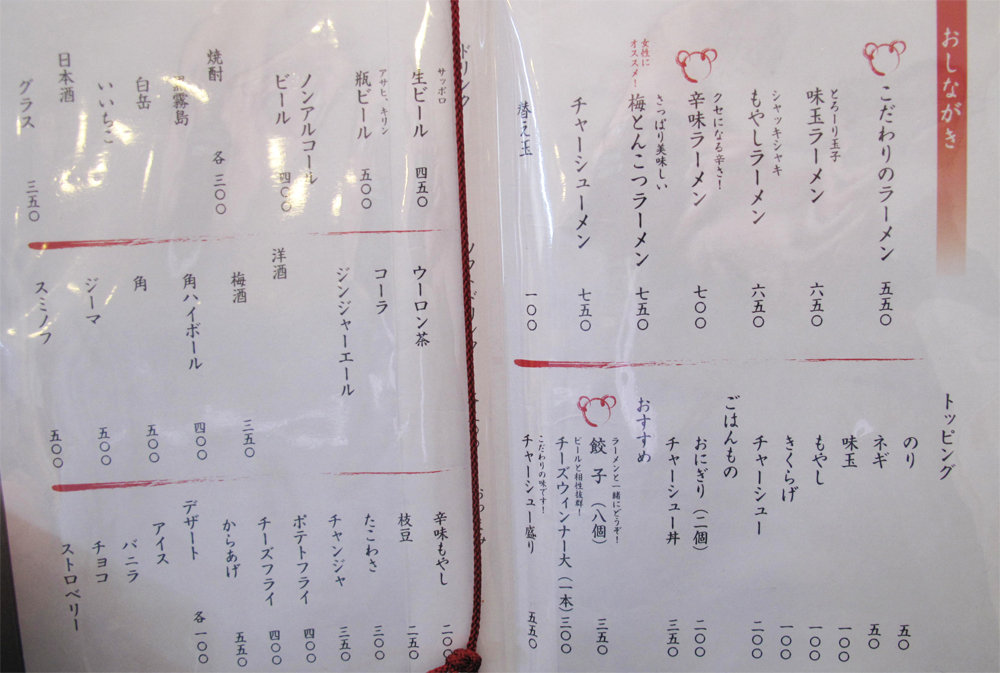 おしながき
こだわりのラーメン 五五〇
とろーり玉子
味玉ラーメン 六五〇
シャッキシャキ
もやしラーメン 六五〇
クセになる辛さ!
辛味ラーメン 七〇〇
女性に
オススメ!
さっぱり美味しい
梅とんこつラーメン 七五〇
チャーシューメン 七五〇
替え玉 一〇〇
トッピング
のり 五〇
ネギ 五〇
味玉 一〇〇
もやし 一〇〇
きくらげ 一〇〇
チャーシュー 二〇〇
ごはんもの
おにぎり(二個) 二〇〇
チャーシュー丼 三五〇
おすすめ
ラーメンと一緒にどうぞ!
餃子(八個) 三五〇
ビールと相性抜群!
チーズウィンナー大(一本)三〇〇
こだわりの味です!
チャーシュー盛り 五五〇
ドリンク
サッポロ
生ビール 四五〇
アサヒ、キリン
瓶ビール 五〇〇
ノンアルコール
ビール 四〇〇
焼酎
黒霧島 各 三〇〇
白岳
いいちこ
日本酒
グラス 三五〇
ウーロン茶
コーラ
ジンジャーエール
洋酒
梅酒 三五〇
角ハイボール 四〇〇
角 五〇〇
ジーマ 五〇〇
スミノフ 五〇〇
辛味もやし 二〇〇
枝豆 二五〇
たこわさ 三〇〇
チャンジャ 三五〇
ポテトフライ 四〇〇
チーズフライ 四〇〇
からあげ 五五〇
デザート 各 一〇〇
アイス
バニラ
チョコ
ストロベリー